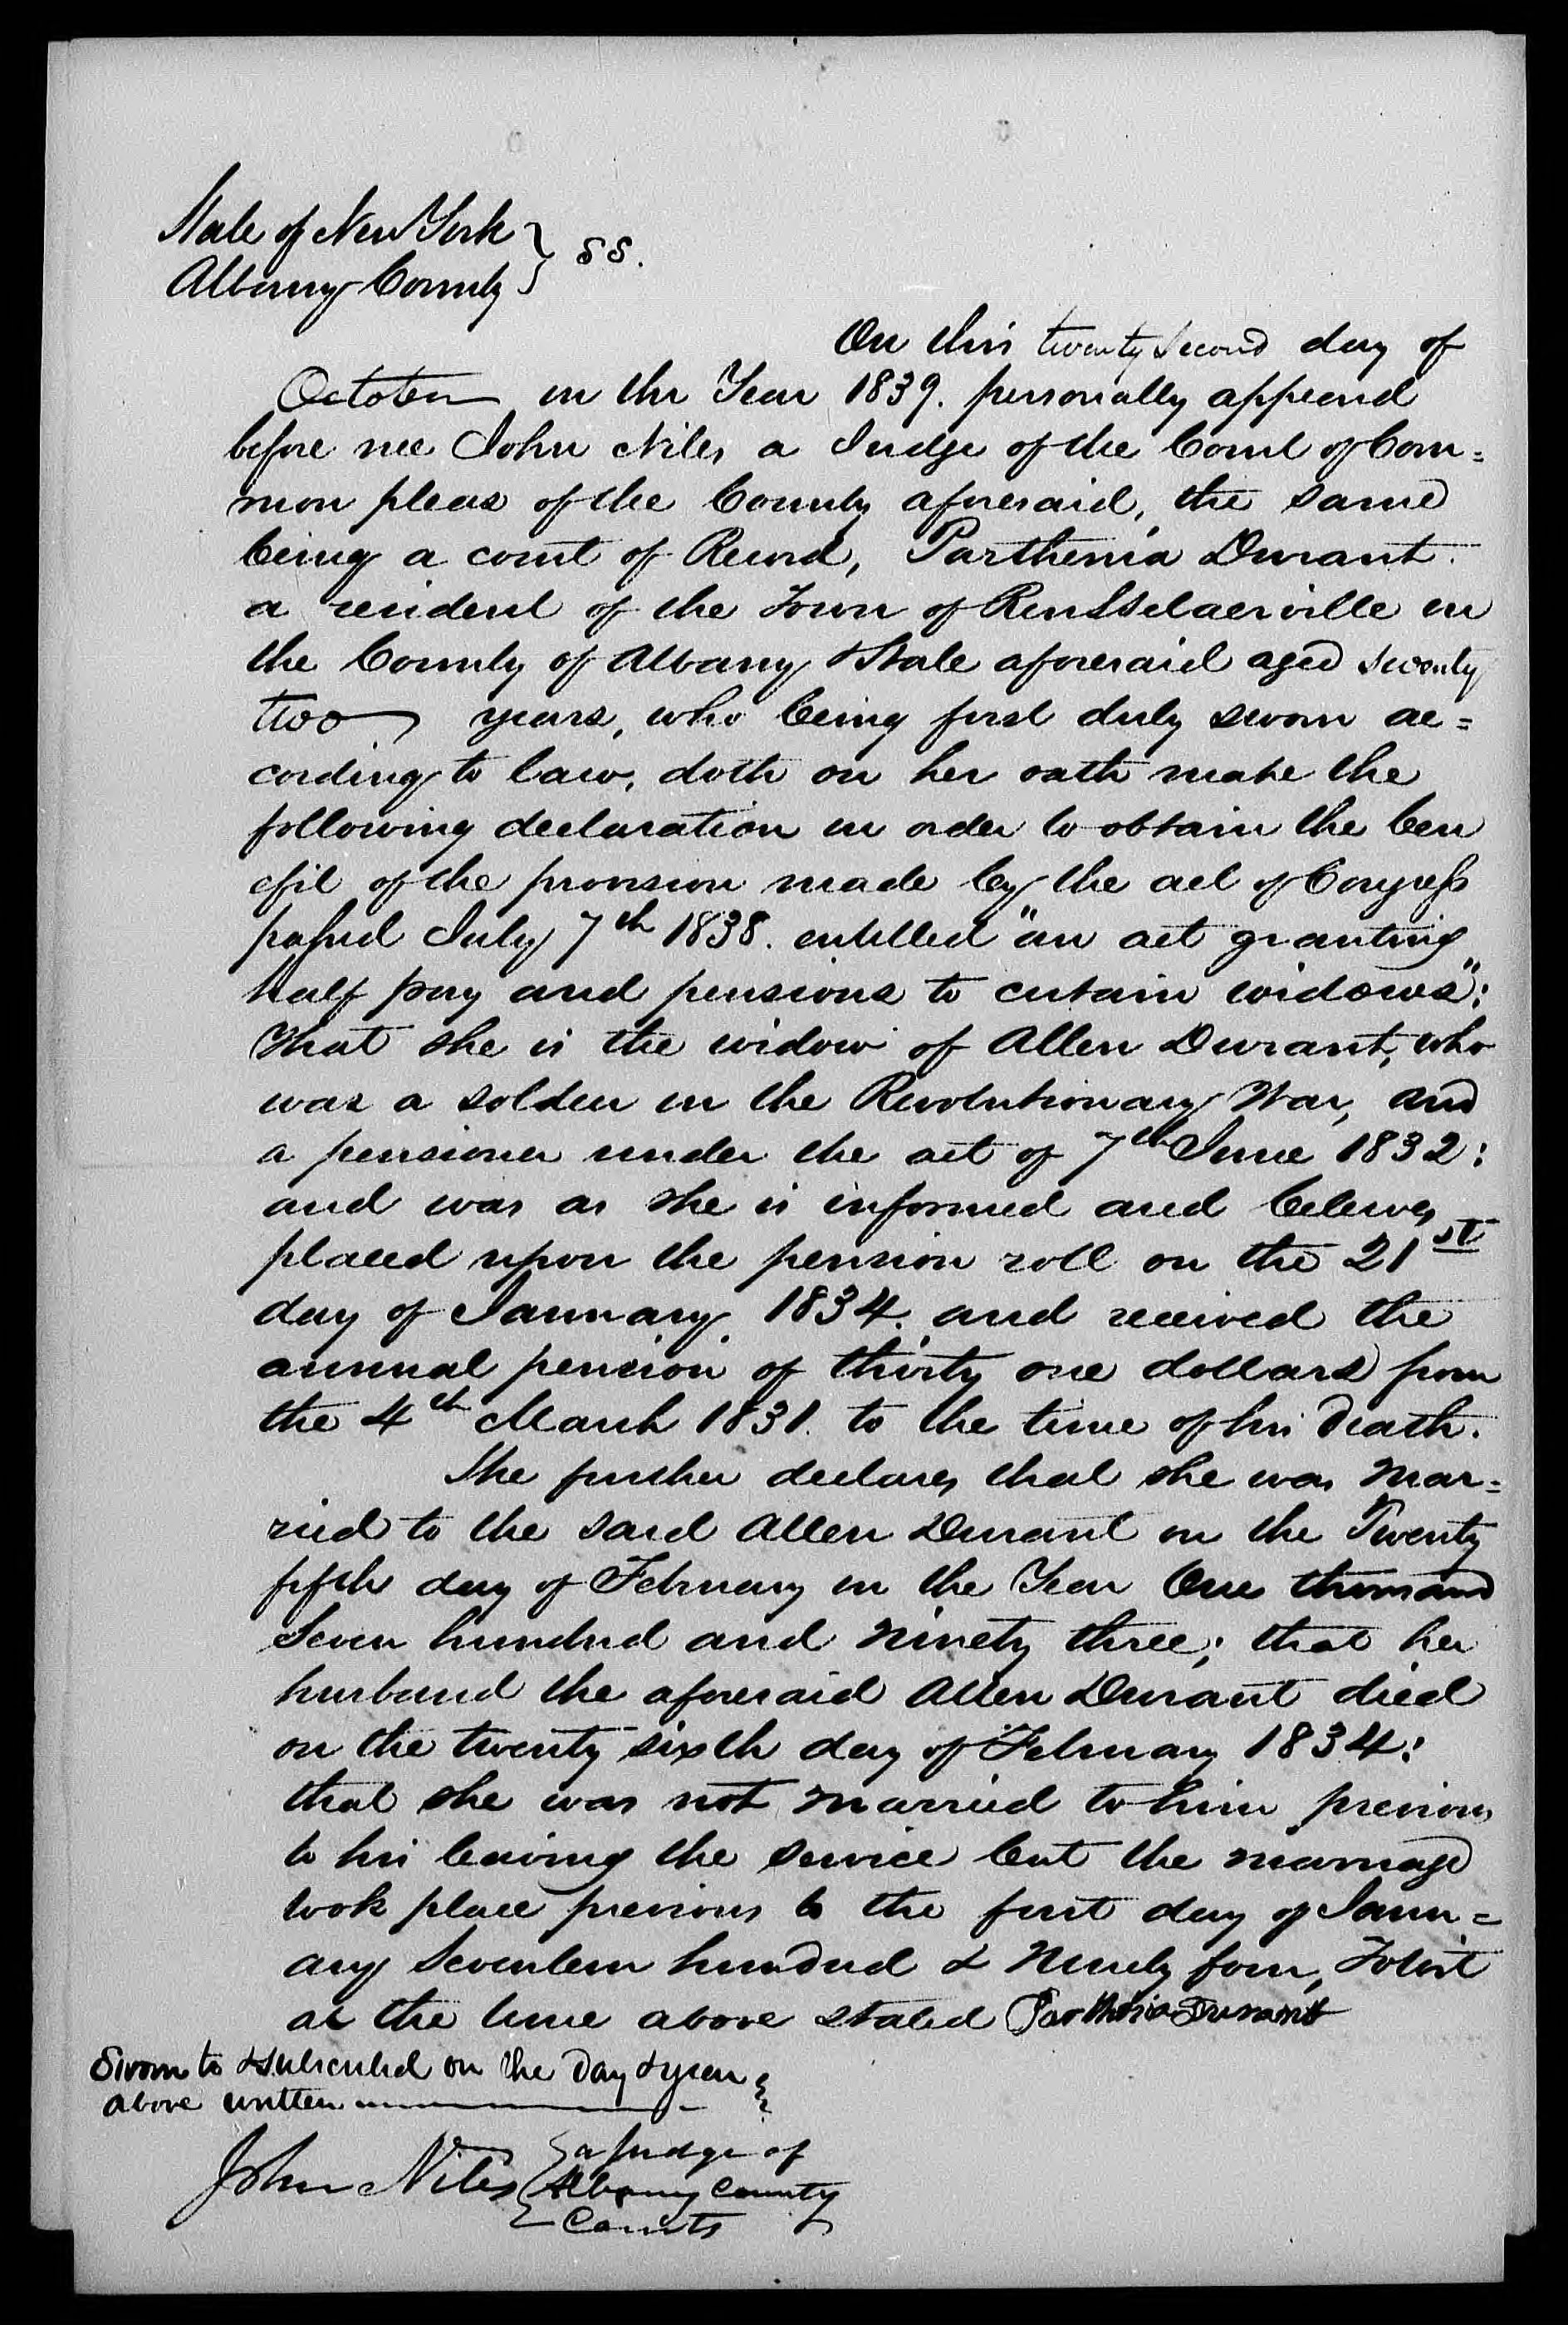 State of New York } ss.
Albany County }
On this twenty second day of
October in the Year 1839. personally appeard
before me John Niles a Judge of the Court of Com=
mon pleas of the County aforesaid, the same
being a court of Record, Parthenia Durant.
a resident of the Town of RensSelaerville in
the County of Albany & State aforesaid aged seventy
two years, who being first duly sworn ac=
cording to law, doth on her oath make the
following declaration in order to obtain the ben
efit of the provision made by the act of Congress
passed July 7th 1838. entitled "an act granting
half pay and pensions to certain widows":
That she is the widow of Allen Durant, who
was a soldier in the Revolutionary War, and
a pensioner under the act of 7th June 1832:
and was as she is informed and believes
placed upon the pension roll on the 21st
day of January 1834. and received the
annual pension of thirty one dollars from
the 4th March 1831. to the time of his Death.
She further declares that she was mar=
ried to the said Allen Durant on the Twenty
fifth day of February in the Year One thousand
Seven hundred and Ninety three; that her
husband the aforesaid Allen Durant died
on the twenty sixth day of February 1834:
that she was not married to him previous
to his leaving the service but the marriage
took place previous to the first day of Janu=
ary Seventeen hundred & Ninety four, To wit
at the time above stated Parthenia Durant
Sworn to & subscribed on the Day & year
above written
John Niles a Judge of
Albany County
Courts